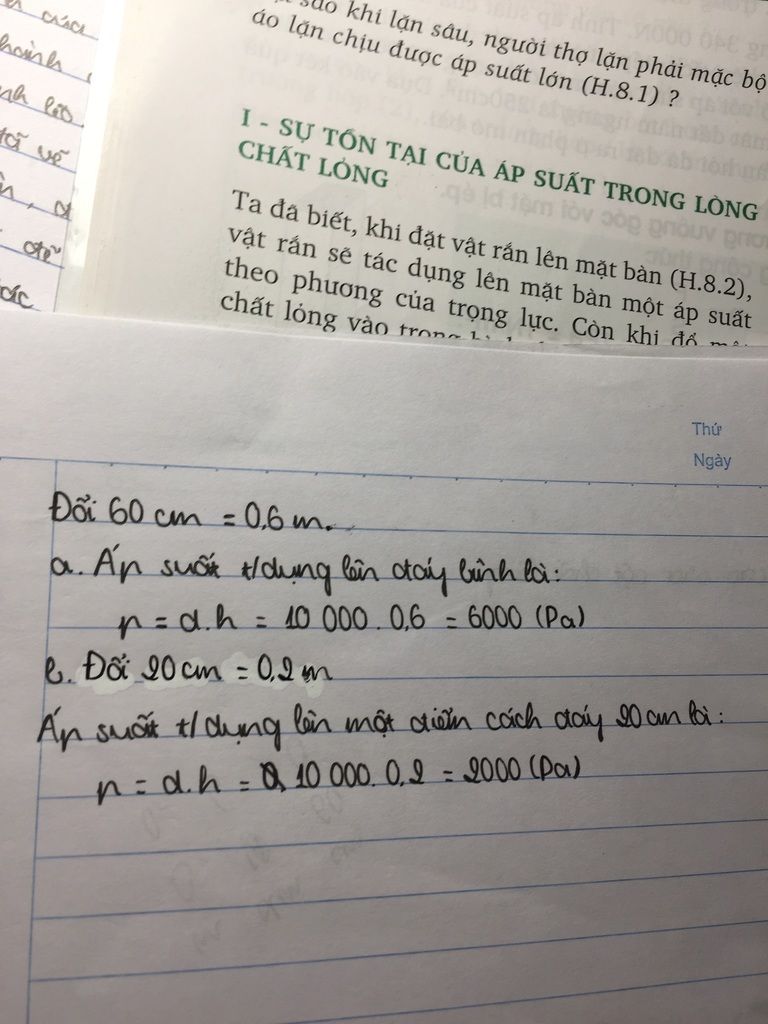 sao khi lặn sâu, người thợ lặn phải mặc bộ
áo lặn chịu được áp suất lớn (H.8.1) ?
I - SỰ TỒN TẠI CỦA ÁP SUẤT TRONG LÒNG
CHẤT LỎNG
Ta đã biết, khi đặt vật rắn lên mặt bàn (H.8.2),
vật rắn sẽ tác dụng lên mặt bàn một áp suất
theo phương của trọng lực. Còn khi đổ một
chất lỏng vào trong
Thứ
Ngày
Đổi 60 cm = 0,6 m.
a. Áp suất t/dụng lên đáy bình là:
p = d.h = 10 000 . 0,6 = 6000 (Pa)
b. Đổi 20 cm = 0,2 m
Áp suất t/dụng lên một điểm cách đáy 20 cm là:
p = d.h = 10 000. 0,2 = 2000 (Pa)